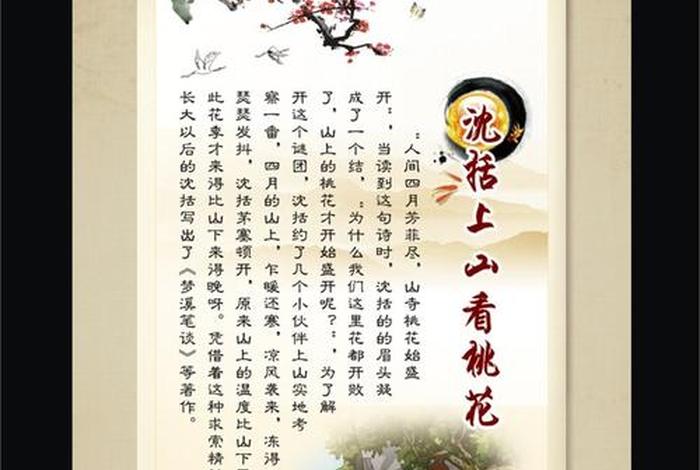 沈括上山看桃花
：人间四月芳菲尽，山寺桃花始盛
开：，当读到这句诗时，沈括的的眉头凝
成了一个结，：为什么我们这里花都开败
了，山上的桃花才开始盛开呢？：，为了解
开这个谜团，沈括约了几个小伙伴上山实地考
察一番，四月的山上，乍暖还寒，凉风袭来，冻得
瑟瑟发抖，沈括茅塞顿开，原来山上的温度比山下
此花季才来得比山下来得晚呀。凭借着这种求索精
长大以后的沈括写出了《梦溪笔谈》等著作。